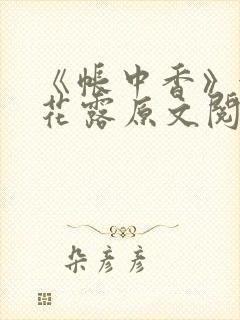 《帐中香》
花露原文阅
朵彦彦